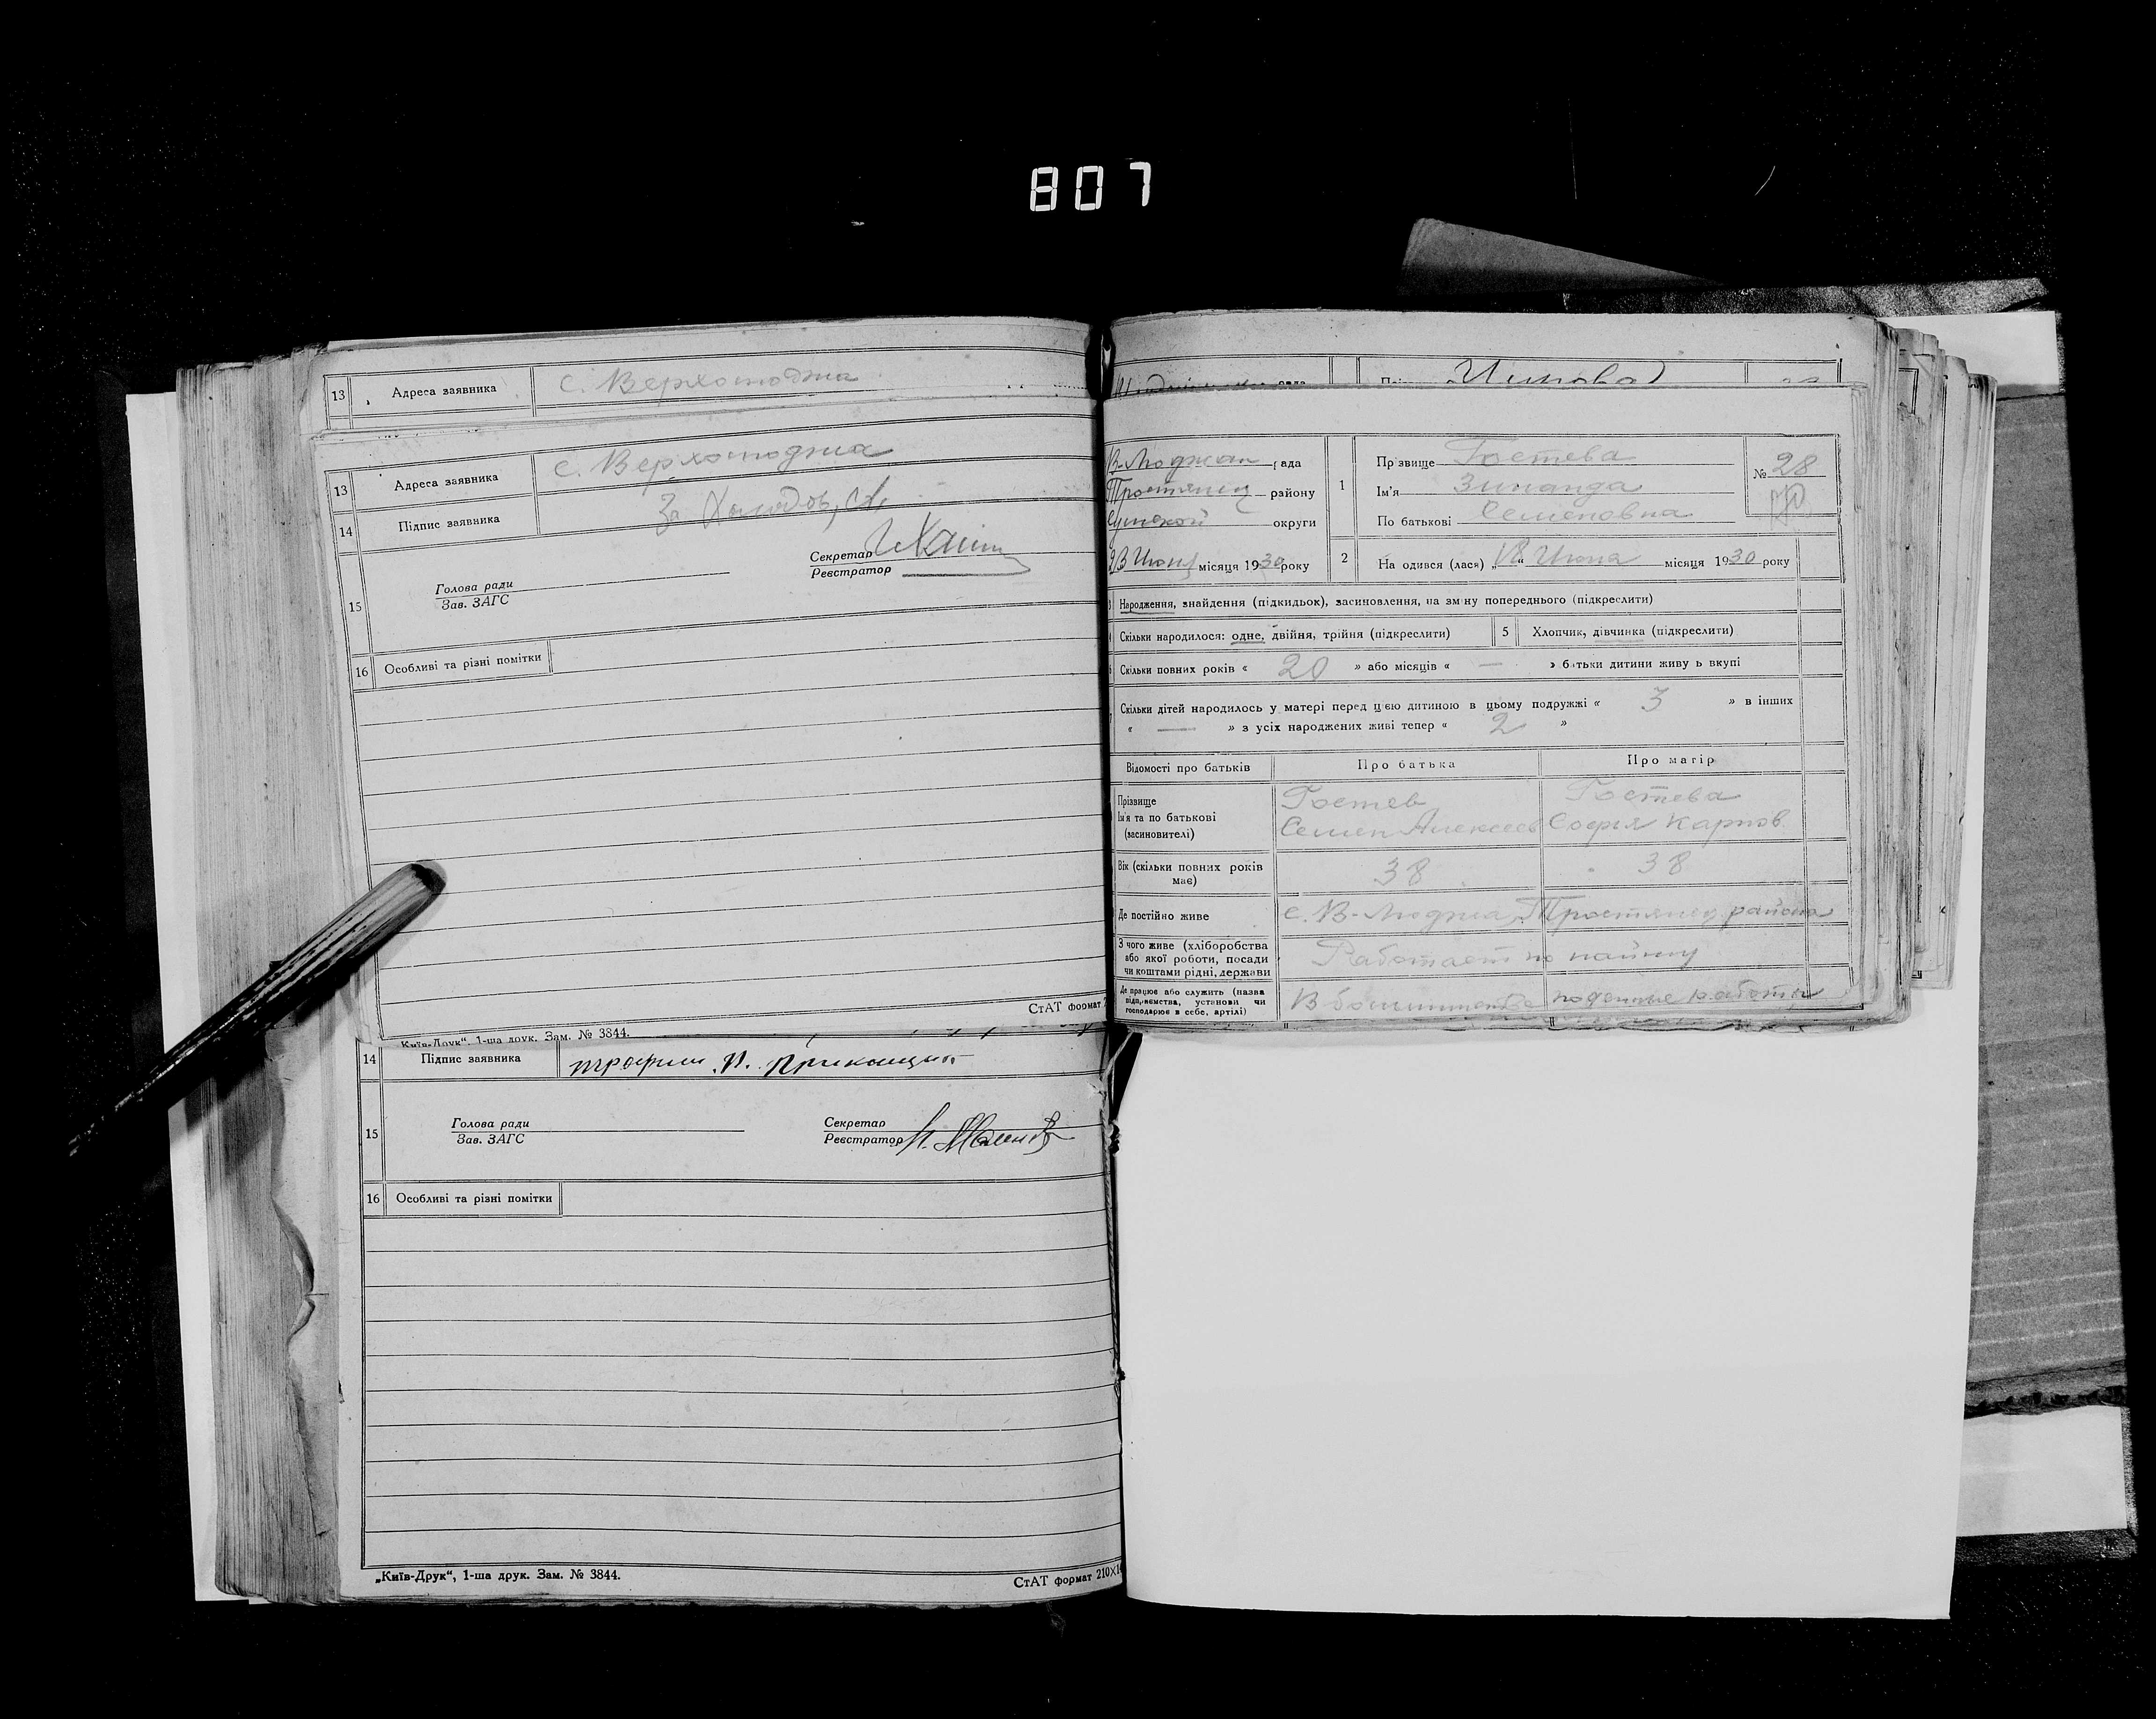 807
13 Адреса заявника с. Верхолюджа
13 Адреса заявника с. Верхолюджа
14 Підпис заявника За
15 Голова ради Секретар
Зав. ЗАГС Реєстратор
16 Особливі та різні помітки
СтАТ формат
„Київ-Друк“, 1-ша друк. Зам. № 3844.
14 Підпис заявника
15 Голова ради Секретар
Зав. ЗАГС Реєстратор
16 Особливі та різні помітки
„Київ-Друк“, 1-ша друк. Зам. № 3844. СтАТ формат 210×1
рада
В-Люджан рада
Тростянец району
Сумской округи
23 Июня місяця 1930 року
1 Прізвище Гостева
Ім'я Зинаида
По батькові Семеновна
№ 28
2 На одився (лася) „18“ Июня місяця 1930 року
Народження, знайдення (підкидьок), засиновлення, на зміну попереднього (підкреслити)
Скільки народилося: одне, двійня, трійня (підкреслити) 5 Хлопчик, дівчинка (підкреслити)
Скільки повних років « 20 » або місяців « — » батьки дитини живу ь вкупі
Скільки дітей народилось у матері перед цією дитиною в цьому подружжі « 3 » в інших
« — » з усіх народжених живі тепер « 2 »
Відомості про батьків Про батька Про матір
Прізвище Гостев Гостева
Ім'я та по батькові Семен Алексеев София Карпов
(засиновителі)
Вік (скільки повних років 38 38
має)
Де постійно живе с. В-Люджа, Тростянец. района
З чого живе (хліборобства
або якої роботи, посади Работает по найму
чи коштами рідні, держави
Де працює або служить (назва
відприємства, установи чи В поденные работы
господарює в себе, артілі)